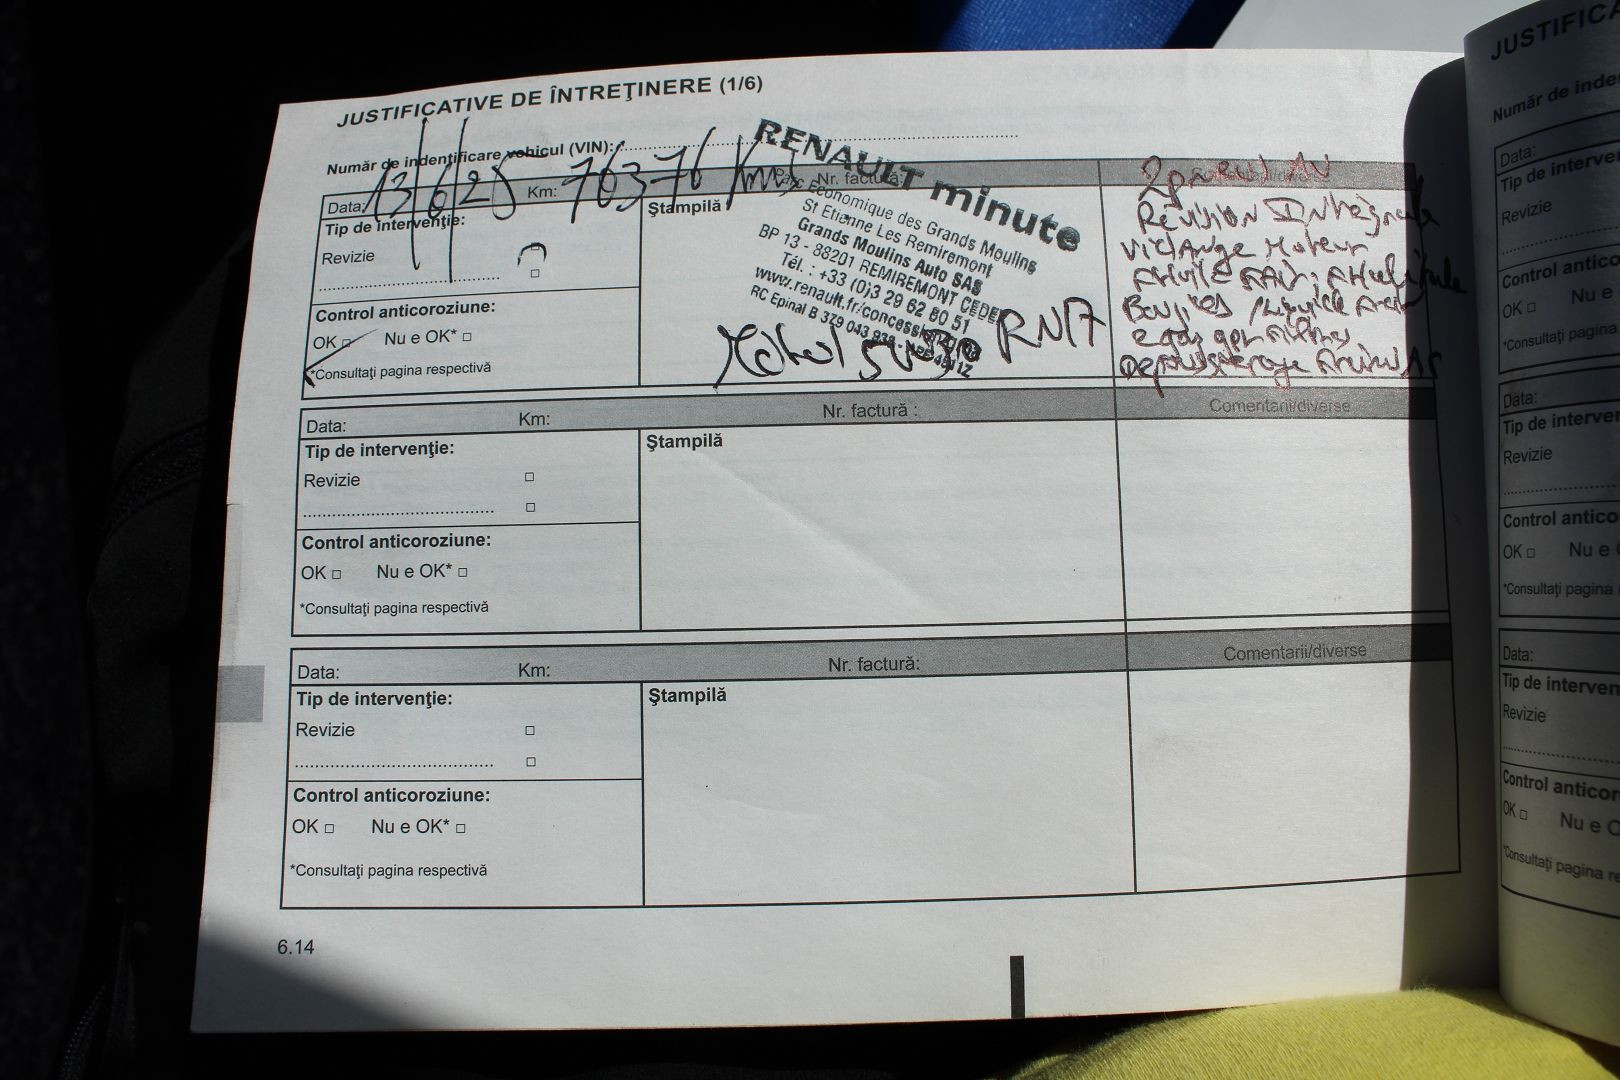 JUSTIFICATIVE DE ÎNTREŢINERE (1/6)
Număr de indentificare vehicul (VIN):
Data: 13/6/25 Km: 76376 Kms Nr. factură:
Tip de intervenţie:
Revizie
Control anticoroziune:
OK Nu e OK*
*Consultaţi pagina respectivă
Ştampilă
RENAULT minute
Parc Economique des Grands Moulins
St Etienne Les Remiremont
Grands Moulins Auto SAS
BP 13 - 88201 REMIREMONT CEDEX
Tél. : +33 (0)3 29 62 80 51
www.renault.fr/concession
RC Epinal B 379 043 93
RN17
2 pneus AV
Révision Intégrale
Vidange Moteur
Bougies / Liquide
Depoussierage
Data: Km: Nr. factură : Comentarii/diverse
Tip de intervenţie:
Revizie
Control anticoroziune:
OK Nu e OK*
*Consultaţi pagina respectivă
Ştampilă
Data: Km: Nr. factură: Comentarii/diverse
Tip de intervenţie:
Revizie
Control anticoroziune:
OK Nu e OK*
*Consultaţi pagina respectivă
Ştampilă
6.14
JUSTIFICA
Număr de inde
Data:
Tip de interven
Revizie
Control antico
OK Nu e
*Consultaţi pagina
Data:
Tip de interven
Revizie
Control antico
OK Nu e
*Consultaţi pagina
Data:
Tip de interven
Revizie
Control anticor
OK Nu e O
*Consultaţi pagina re